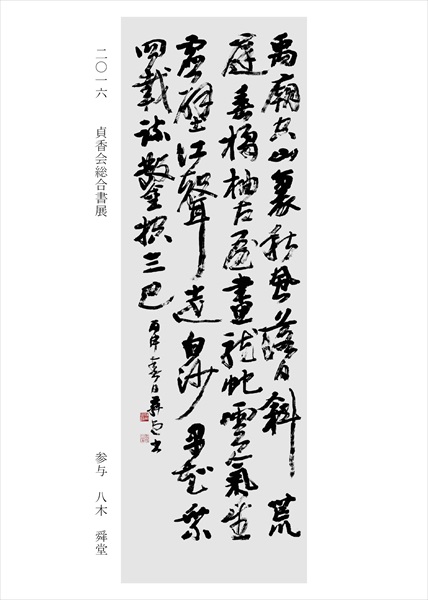 禹廟空山裏秋風落日斜荒
庭垂橘柚古屋畫龍蛇雲氣生
虚壁江聲走白沙早知乘
四載疏鑿控三巴
丙申春日舜堂書
二〇一六 貞香会総合書展
参与 八木 舜堂